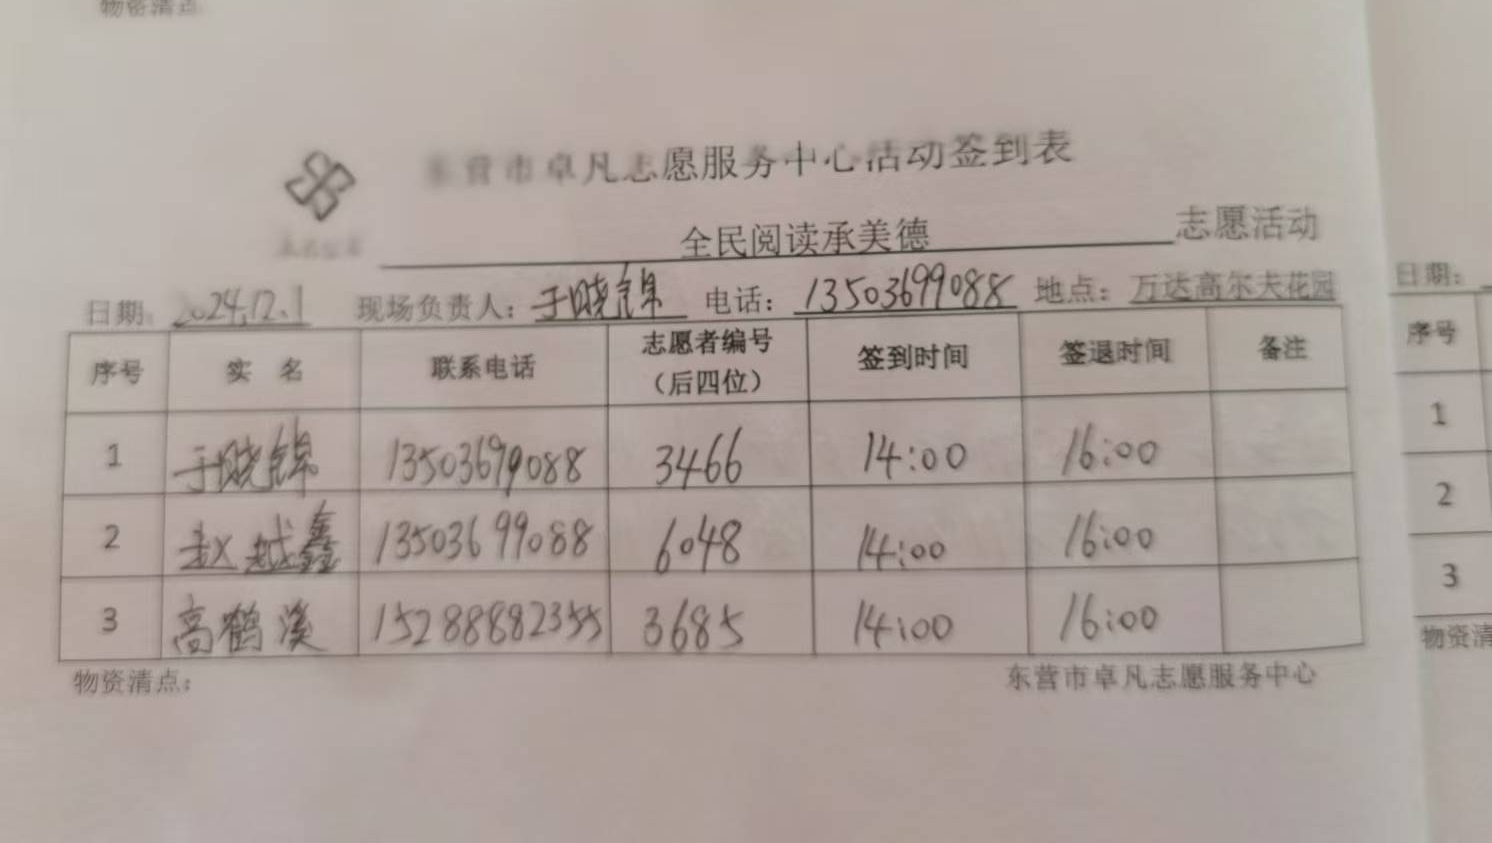 物资清点
东营市卓凡志愿服务中心活动签到表
全民阅读承美德 志愿活动
日期: 2024.12.1 现场负责人: 于晓锦 电话: 13503699088 地点: 万达高尔夫花园
序号 实 名 联系电话 志愿者编号（后四位） 签到时间 签退时间 备注
1 于晓锦 13503699088 3466 14:00 16:00
2 赵越鑫 13503699088 6048 14:00 16:00
3 高鹤溪 15288882355 3685 14:00 16:00
物资清点: 东营市卓凡志愿服务中心
日期:
序号
1
2
3
物资清